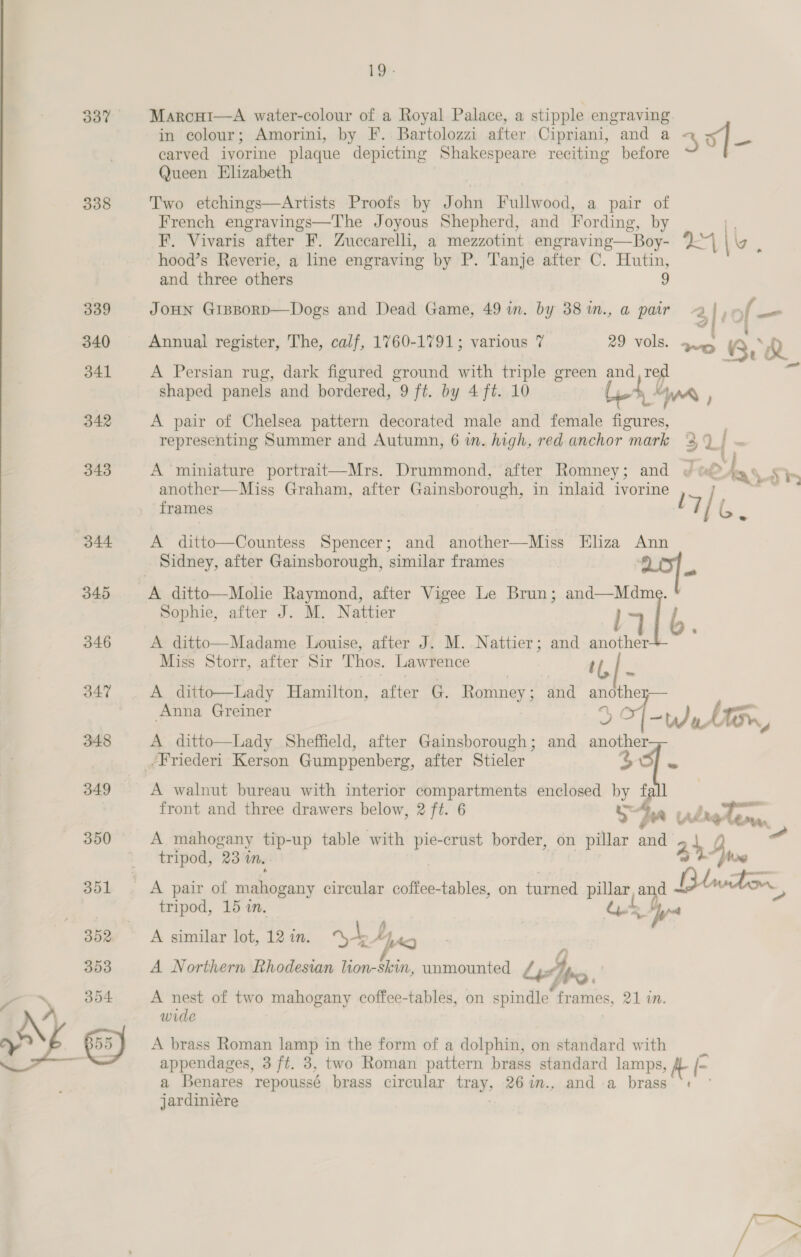 19
337 MARCHI—A water-colour of a Royal Palace, a stipple engraving
in colour; Amorini, by F. Bartolozzi after Cipriani, and a
carved ivorine plaque depicting Shakespeare reciting before
Queen Elizabeth
338 Two etchings—Artists Proofs by John Fullwood, a pair of
French engravings—The Joyous Shepherd, and Fording, by
F. Vivaris after F. Zuccarelli, a mezzotint engraving—Boy-
hood's Reverie, a line engraving by P. Tanje after C. Hutin,
and three others 9
339 JOHN GIBBORD—Dogs and Dead Game, 49 in. by 38 in., a pair
340 Annual register, The, calf, 1760-1791; various 7 29 vols.
341 A Persian rug, dark figured ground with triple green and red
shaped panels and bordered, 9 ft. by 4 ft. 10
342 A pair of Chelsea pattern decorated male and female figures,
representing Summer and Autumn, 6 in. high, red anchor mark
343 A miniature portrait—Mrs. Drummond, after Romney; and
another—Miss Graham, after Gainsborough, in inlaid ivorine
frames 17/6.
344 A ditto—Countess Spencer; and another—Miss Eliza Ann
Sidney, after Gainsborough, similar frames 20/-
345 A ditto—Molie Raymond, after Vigee Le Brun; and—Mdme.
Sophie, after J. M. Nattier 17/6.
346 A ditto—Madame Louise, after J. M. Nattier; and another—
Miss Storr, after Sir Thos. Lawrence
347 A ditto—Lady Hamilton, after G. Romney; and another—
Anna Greiner 30/-
348 A ditto—Lady Sheffield, after Gainsborough; and another—
Friederi Kerson Gumppenberg, after Stieler
349 A walnut bureau with interior compartments enclosed by fall
front and three drawers below, 2 ft. 6
350 A mahogany tip-up table with pie-crust border, on pillar and
tripod, 23 in.
351 A pair of mahogany circular coffee-tables, on turned pillar and
tripod, 15 in.
352 A similar lot, 12 in.
353 A Northern Rhodesian lion-skin, unmounted
354 A nest of two mahogany coffee-tables, on spindle frames, 21 in.
wide
355 A brass Roman lamp in the form of a dolphin, on standard with
appendages, 3 ft. 3, two Roman pattern brass standard lamps,
a Benares repoussé brass circular tray, 26 in., and a brass
jardiniére